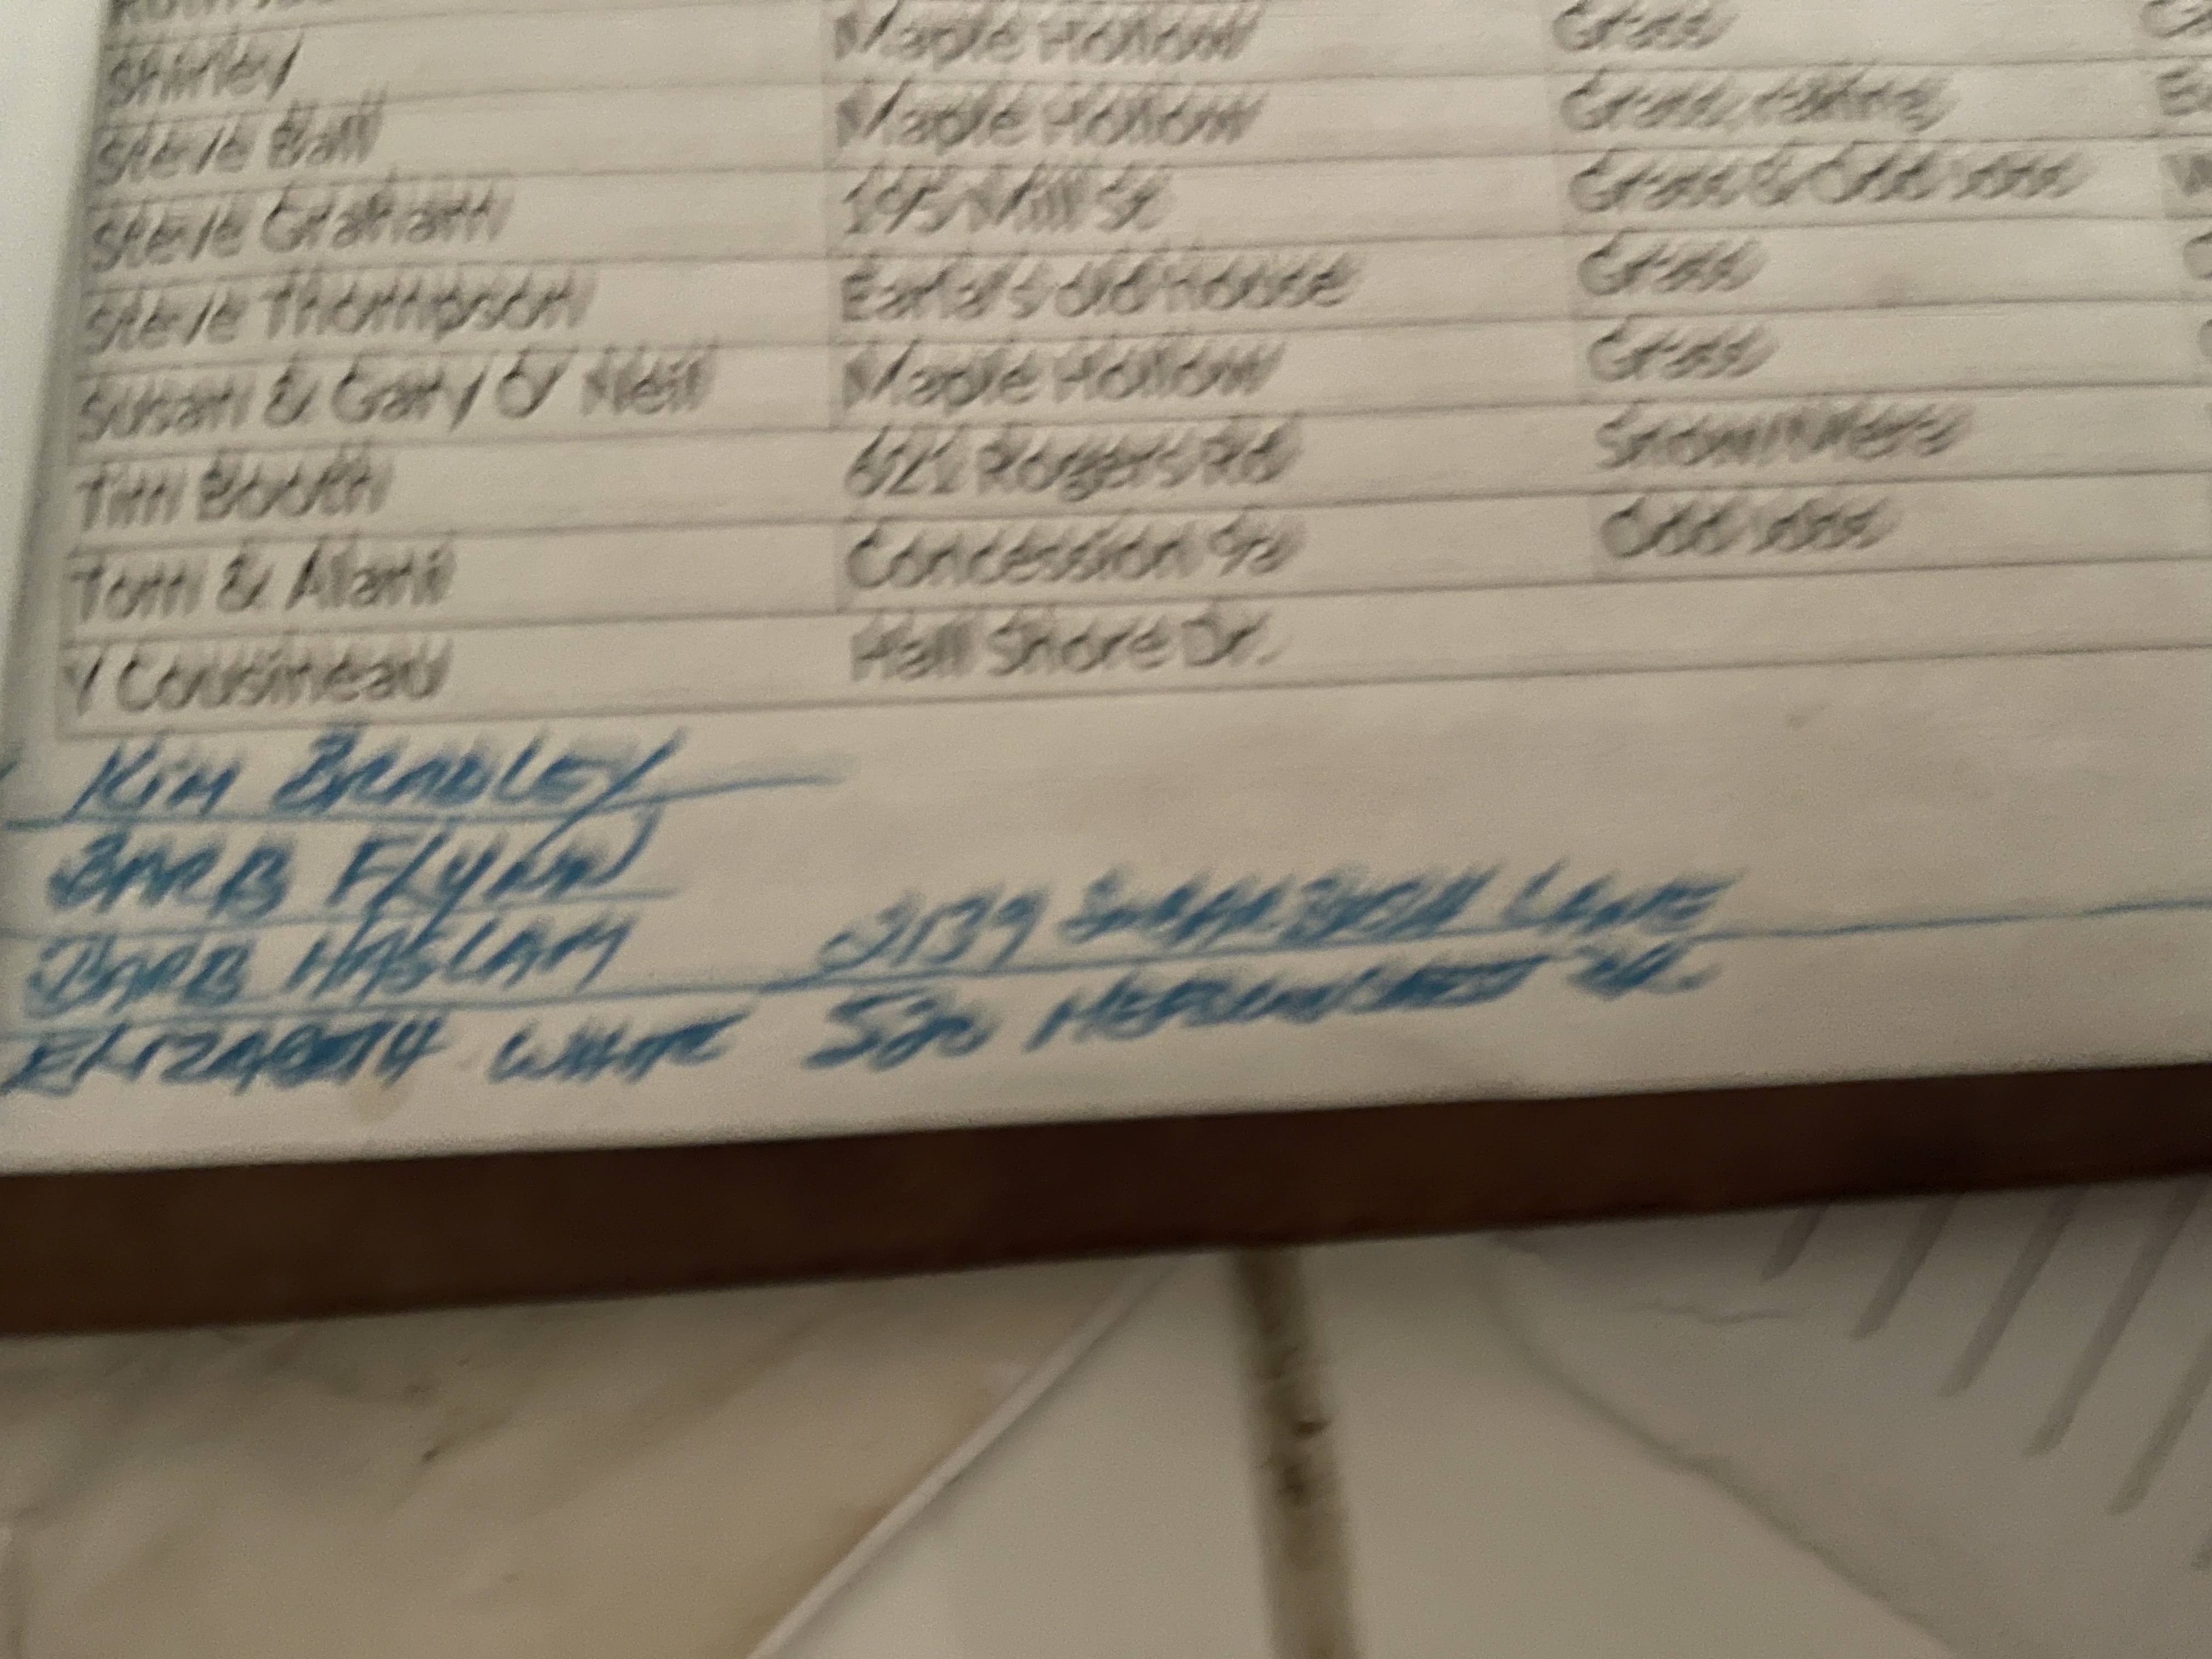 Shirley Maple Hollow Grass
Steve Ball Maple Hollow Grass,
Steve Graham 195 Mill St Grass & Odd jobs
Steve Thompson Earla's old house Grass
Susan & Gary O' Neil Maple Hollow Grass
Tim Booth 621 Rogers Rd
Tom & Allani Concession Odd jobs
Y Cousineau Hall Shore Dr.
KIM BRADLEY
BARB FLYNN
BARB HASLAM 2139 LANE
ELIZABETH WHITE 520 DR.